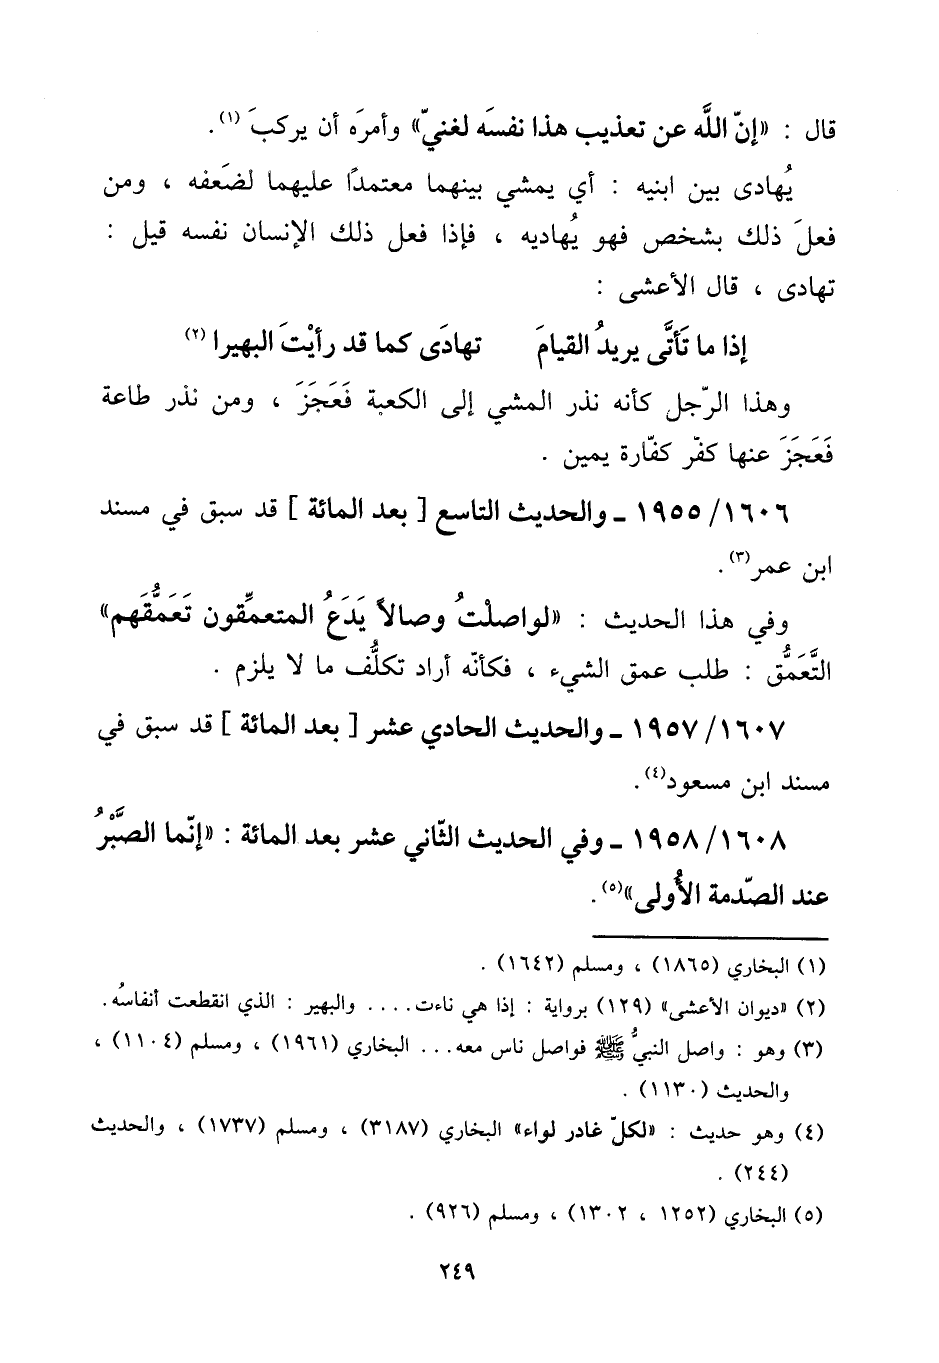 قال : «إنّ اللَّه عن تعذيب هذا نفسَه لغنيّ» وأمرَه أن يركبَ (١).
يُهادى بين ابنيه : أي يمشي بينهما معتمدًا عليهما لضَعفه ، ومن
فعلَ ذلك بشخص فهو يُهاديه ، فإذا فعل ذلك الإنسان نفسه قيل :
تهادى ، قال الأعشى :
إذا ما تَأتَّى يريدُ القيامَ تهادَى كما قد رأيْتَ البهيرا (٢)
وهذا الرّجل كأنه نذر المشي إلى الكعبة فَعَجَزَ ، ومن نذر طاعة
فَعَجَزَ عنها كفّر كفّارة يمين .
١٩٥٥/١٦٠٦ ــ والحديث التاسع [ بعد المائة ] قد سبق في مسند
ابن عمر(٣).
وفي هذا الحديث : «لواصلْتُ وصالاً يَدَعُ المتعمِّقون تَعَمُّقَهم»
التَّعَمُّق : طلب عمق الشيء ، فكأنّه أراد تكلُّف ما لا يلزم .
١٩٥٧/١٦٠٧ ــ والحديث الحادي عشر [ بعد المائة ] قد سبق في
مسند ابن مسعود(٤).
١٩٥٨/١٦٠٨ ــ وفي الحديث الثّاني عشر بعد المائة : «إنّما الصَّبْرُ
عند الصّدمة الأُولى»(٥).
(١) البخاري (١٨٦٥) ، ومسلم (١٦٤٢) .
(٢) «ديوان الأعشى» (١٢٩) برواية : إذا هي ناءت.... والبهير : الذي انقطعت أنفاسُه.
(٣) وهو : واصل النبيُّ ﷺ فواصل ناس معه... البخاري (١٩٦١) ، ومسلم (١١٠٤) ،
والحديث (١١٣٠) .
(٤) وهو حديث : «لكلّ غادر لواء» البخاري (٣١٨٧) ، ومسلم (١٧٣٧) ، والحديث
(٢٤٤) .
(٥) البخاري (١٢٥٢ ، ١٣٠٢) ، ومسلم (٩٢٦) .
٢٤٩